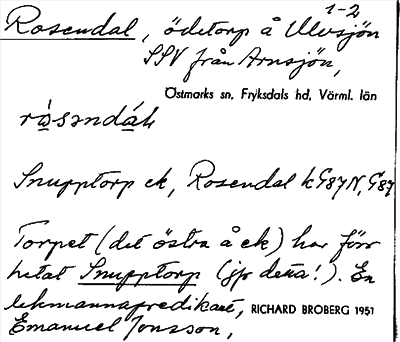 1-2
Rosendal, ödetorp å Ulvsjön
SSV från Arnsjön,
Östmarks sn, Fryksdals hd, Värml. län
Snupptorp ek, Rosendal k G87N, G87
Torpet (det östra å ek) har förr
hetat Snupptorp (jfr detta!). En
lekmannapredikant, RICHARD BROBERG 1951
Emanuel Jonsson,